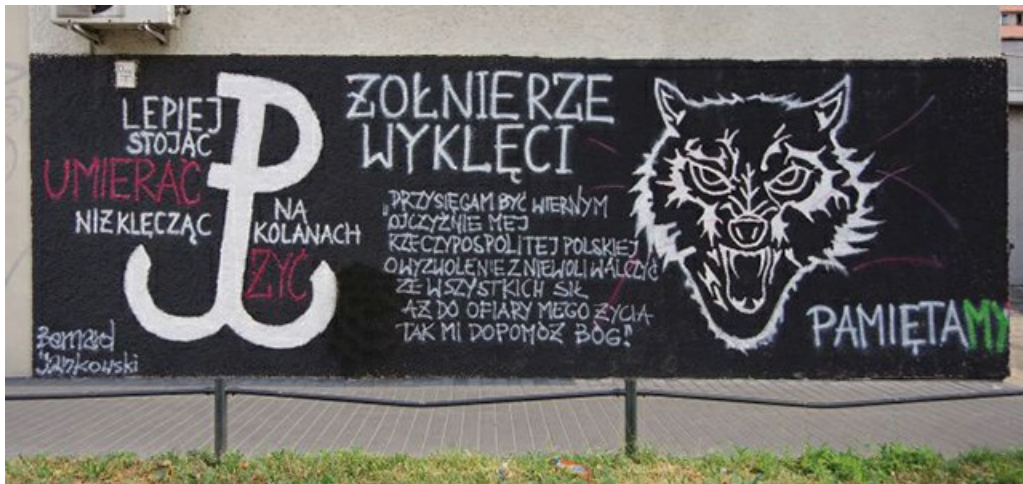 LEPIEJ
STOJĄC
UMIERAĆ
NIŻ KLĘCZĄC
NA
KOLANACH
ŻYĆ
ŻOŁNIERZE
WYKLĘCI
„PRZYSIĘGAM BYĆ WIERNYM
OJCZYŹNIE MEJ
RZECZYPOSPOLITEJ POLSKIEJ
O WYZWOLENIE Z NIEWOLI WALCZYĆ
ZE WSZYSTKICH SIŁ
AŻ DO OFIARY MEGO ŻYCIA
TAK MI DOPOMÓŻ BÓG!"
PAMIĘTAMY
Bernard